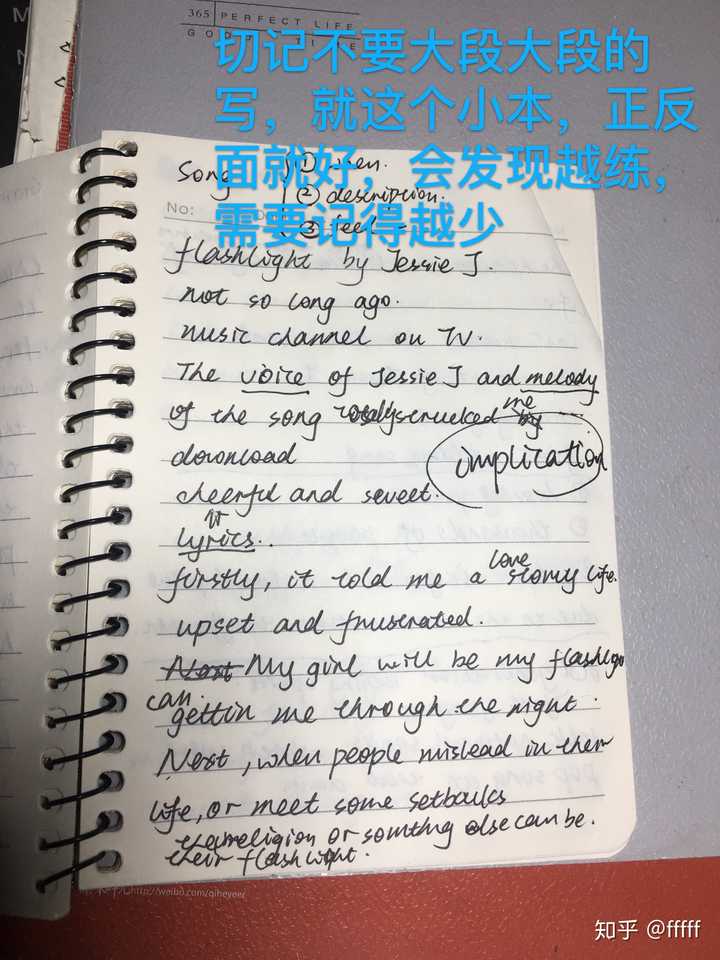 365 PERFECT LIFE
切记不要大段大段的
写，就这个小本，正反
面就好，会发现越练，
需要记得越少
song ① when.
② description.
No:
③ feel
flashlight by Jessie J.
not so long ago.
music channel on TV.
The voice of Jessie J and melody
of the song totally strucked me by
download
implication
cheerful and sweet.
lyrics.
firstly, it told me a love stomy life.
upset and frustrated.
Next My girl will be my flashligh
can.
gettin me through the night.
Next, when people mislead in their
life, or meet some setbacks
religion or somthng else can be.
their flashlight.
http://weibo.com/qiheyeer
知乎 @fffff